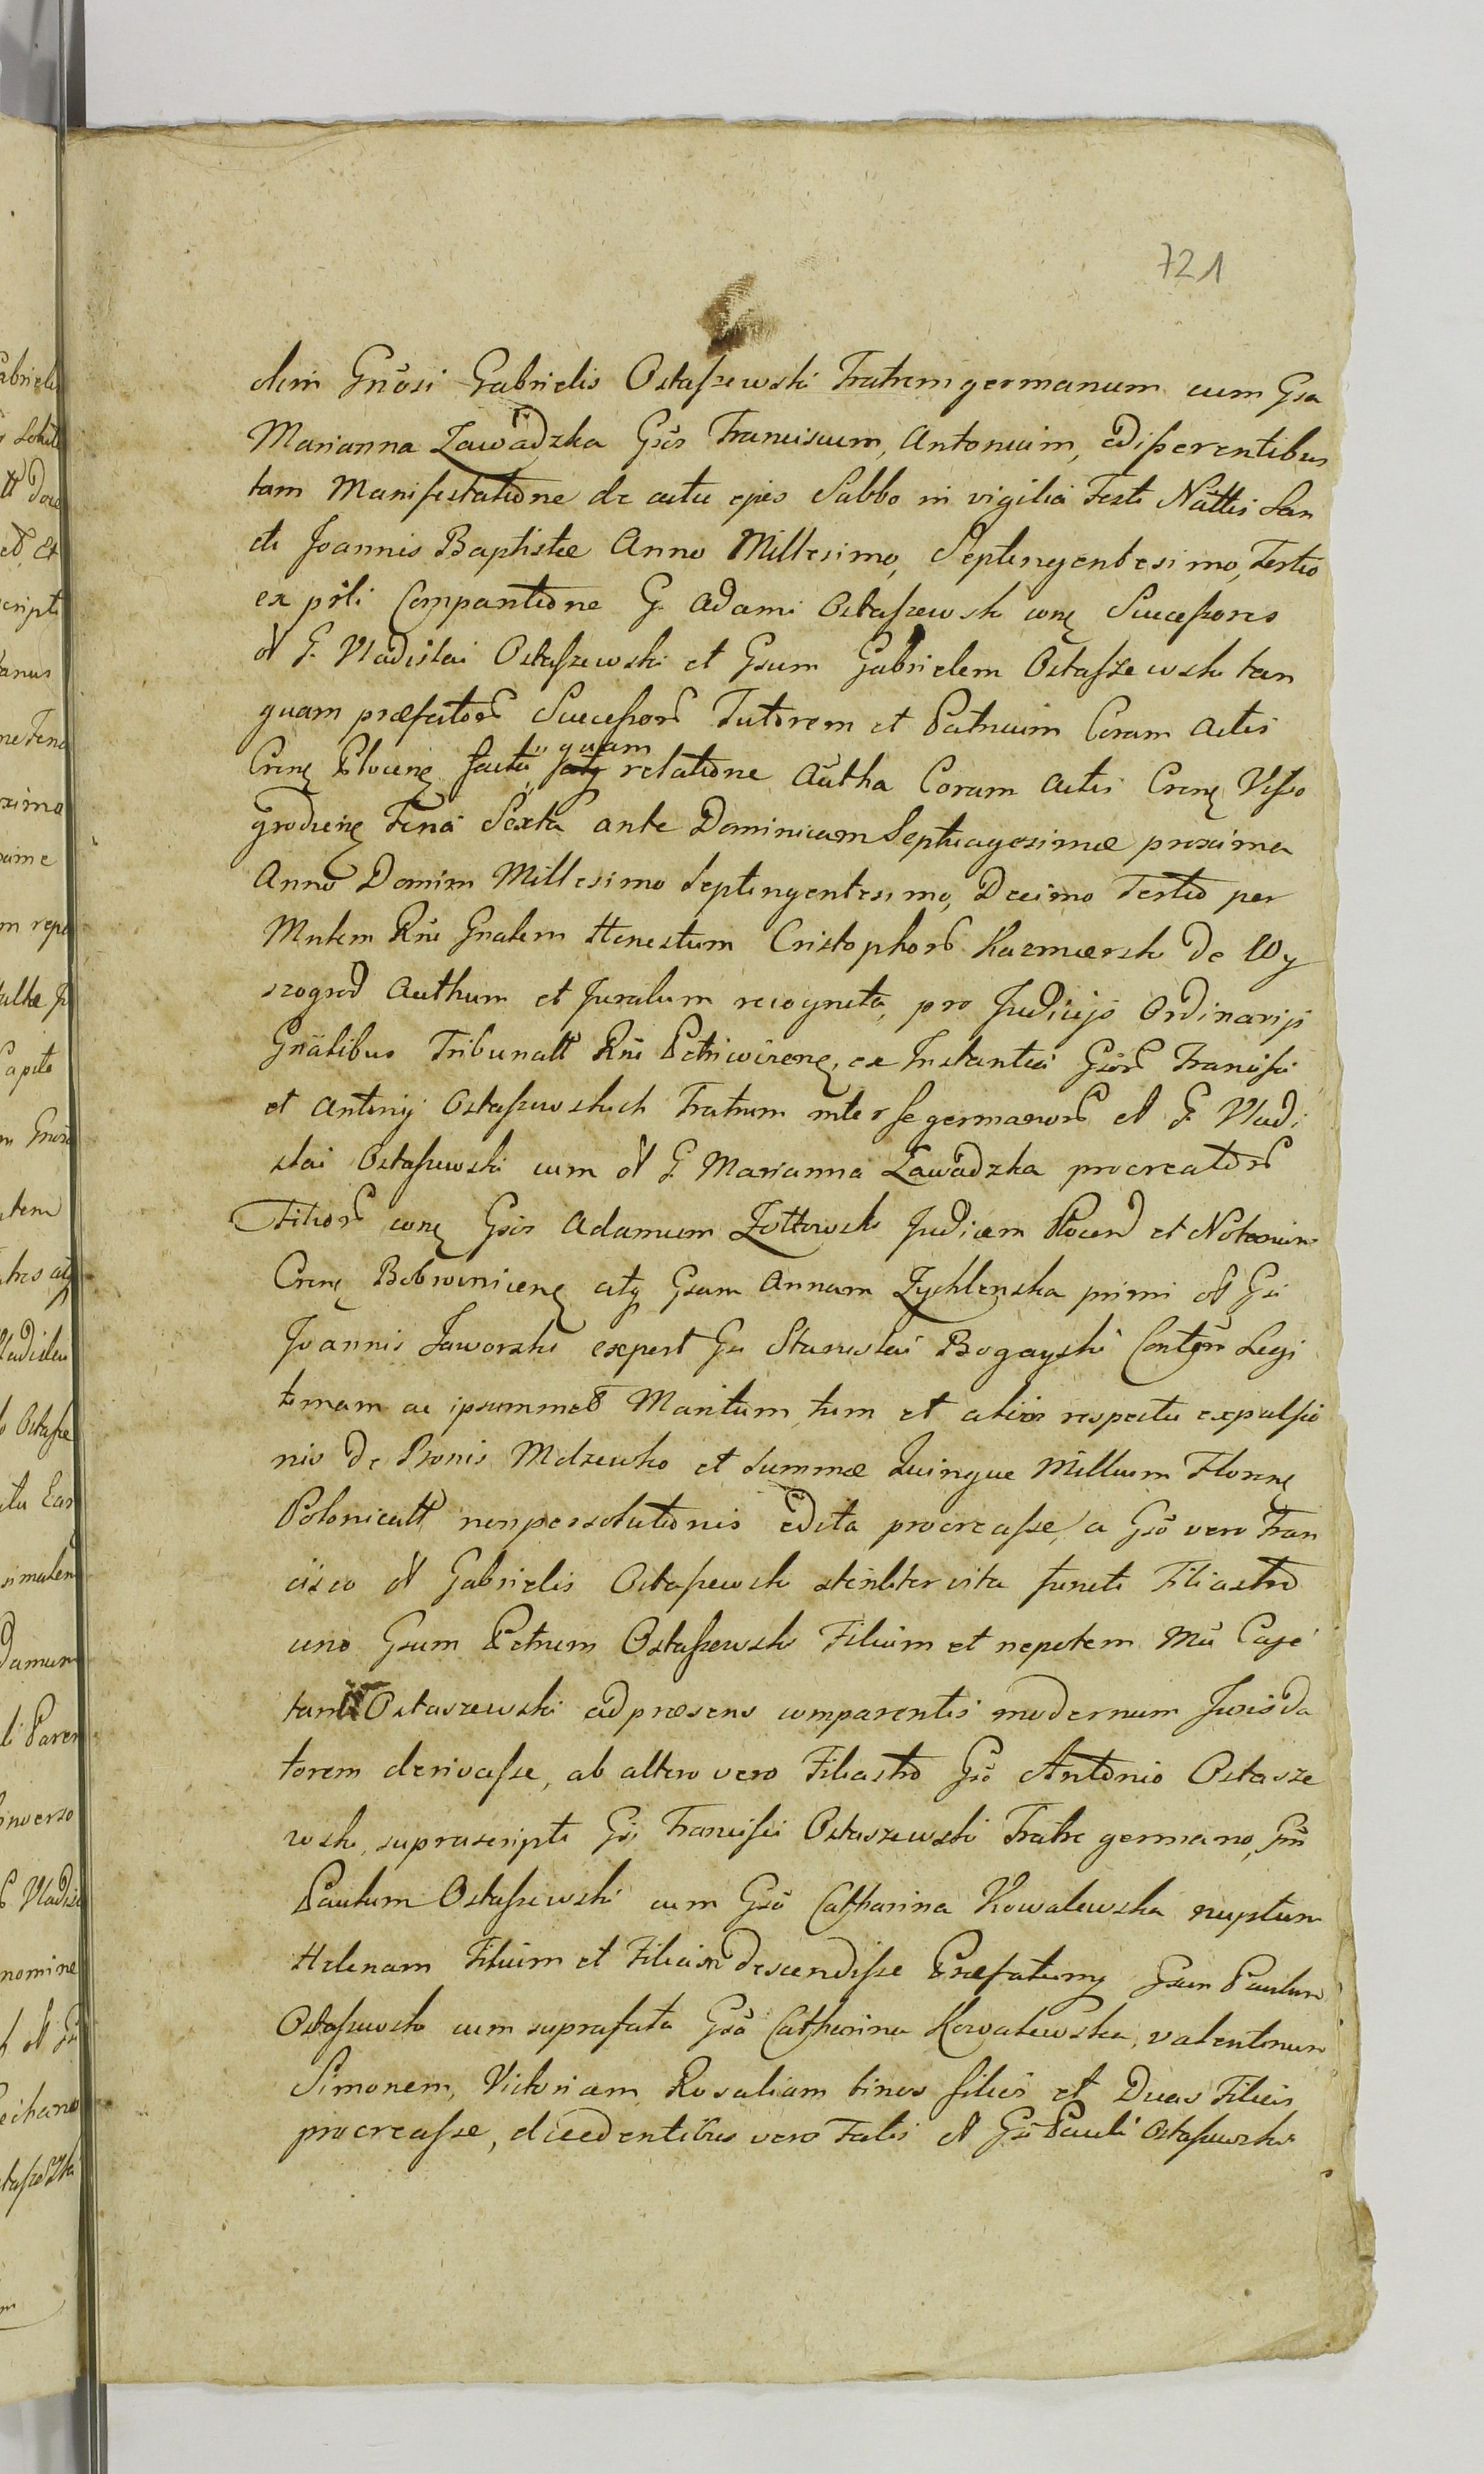 721
olim Gnõsi Gabrielis Ostaszewski Fratrem germanum cum Gsa
Marianna Zawadzka Gsõs Franciscum, Antonium, edisserentibus
tam Manifestatione de actu ejus Sabbo in vigilia Festi Nattis San
cti Joannis Baptistæ Anno Millesimo, Septingentesimo, Tertio
ex psli Comparitione G. Adami Ostaszewski conę Successores
ol G. Vladislai Ostaszewski et Gsum Gabrielem Ostaszewski tan
quam præfator Successor Tutorem et Patruum Coram Actis
Crenę Plocenę facta quam relatione Autha Coram Actis Crenę Visso
grodienę Feria Sexta ante Dominicam Septuagesimæ proxima
Anno Domini Millesimo Septingentesimo, Decimo Tertio per
Mntem Rni Gnalem Honestum Cristophor Kazmierski de Wy
szogrod Authum et Juratum recognita, pro Judicijs Ordinarijs
Gnãlibus Tribunall Rni Petricovienę, ex Instantia Gsor Francisci
et Antonij Ostaszewskich Fratrum inter se germanor ol G. Vladi
slai Ostaszewski cum ol G. Marianna Zawadzka procreator
Filior conę Gsos Adamum Zołtowski Judicem Plocen et Notarium
Crenę Bobrownicenę atq Gsam Annam Zychlinska primi ol Gsi
Joannis Jaworski expost Gsi Stanislai Bogayski Contgm Legi
timam ac ipsummet Maritum, tum et alios respectu expulsio
nis de Bonis Mdzewko et Summæ Quinque Millium Florenę
Polonicall nonpersolutionis edita procreasse, a Gsõ vero Fran
cisco ol Gabrielis Ostaszewski vita functi Filiastro
uno Gsum Petrum Ostaszewski Filium et nepotem Mci Caje
tani Ostaszewski ad præsens comparentis modernum Jurisda
torem derivasse, ab altero vero Filiastro Gsõ Antonio Ostasze
wski, suprascripti Gsi Francisci Ostaszewski Fratre germano, Gsum
Paulum Ostaszewski cum Gsã Catharina Kowalewska nuptum
Helenam Filium et Filiam descendisse Præfatumq Gsum Paulum
Ostaszewski cum suprafata Gsã Catharina Kowalewska, Valentinum
Simonem, Victoriam Rosaliam binos filios et Duas Filias
procreasse, decedentibus vero Fatis ol Gsi Pauli Ostaszewski